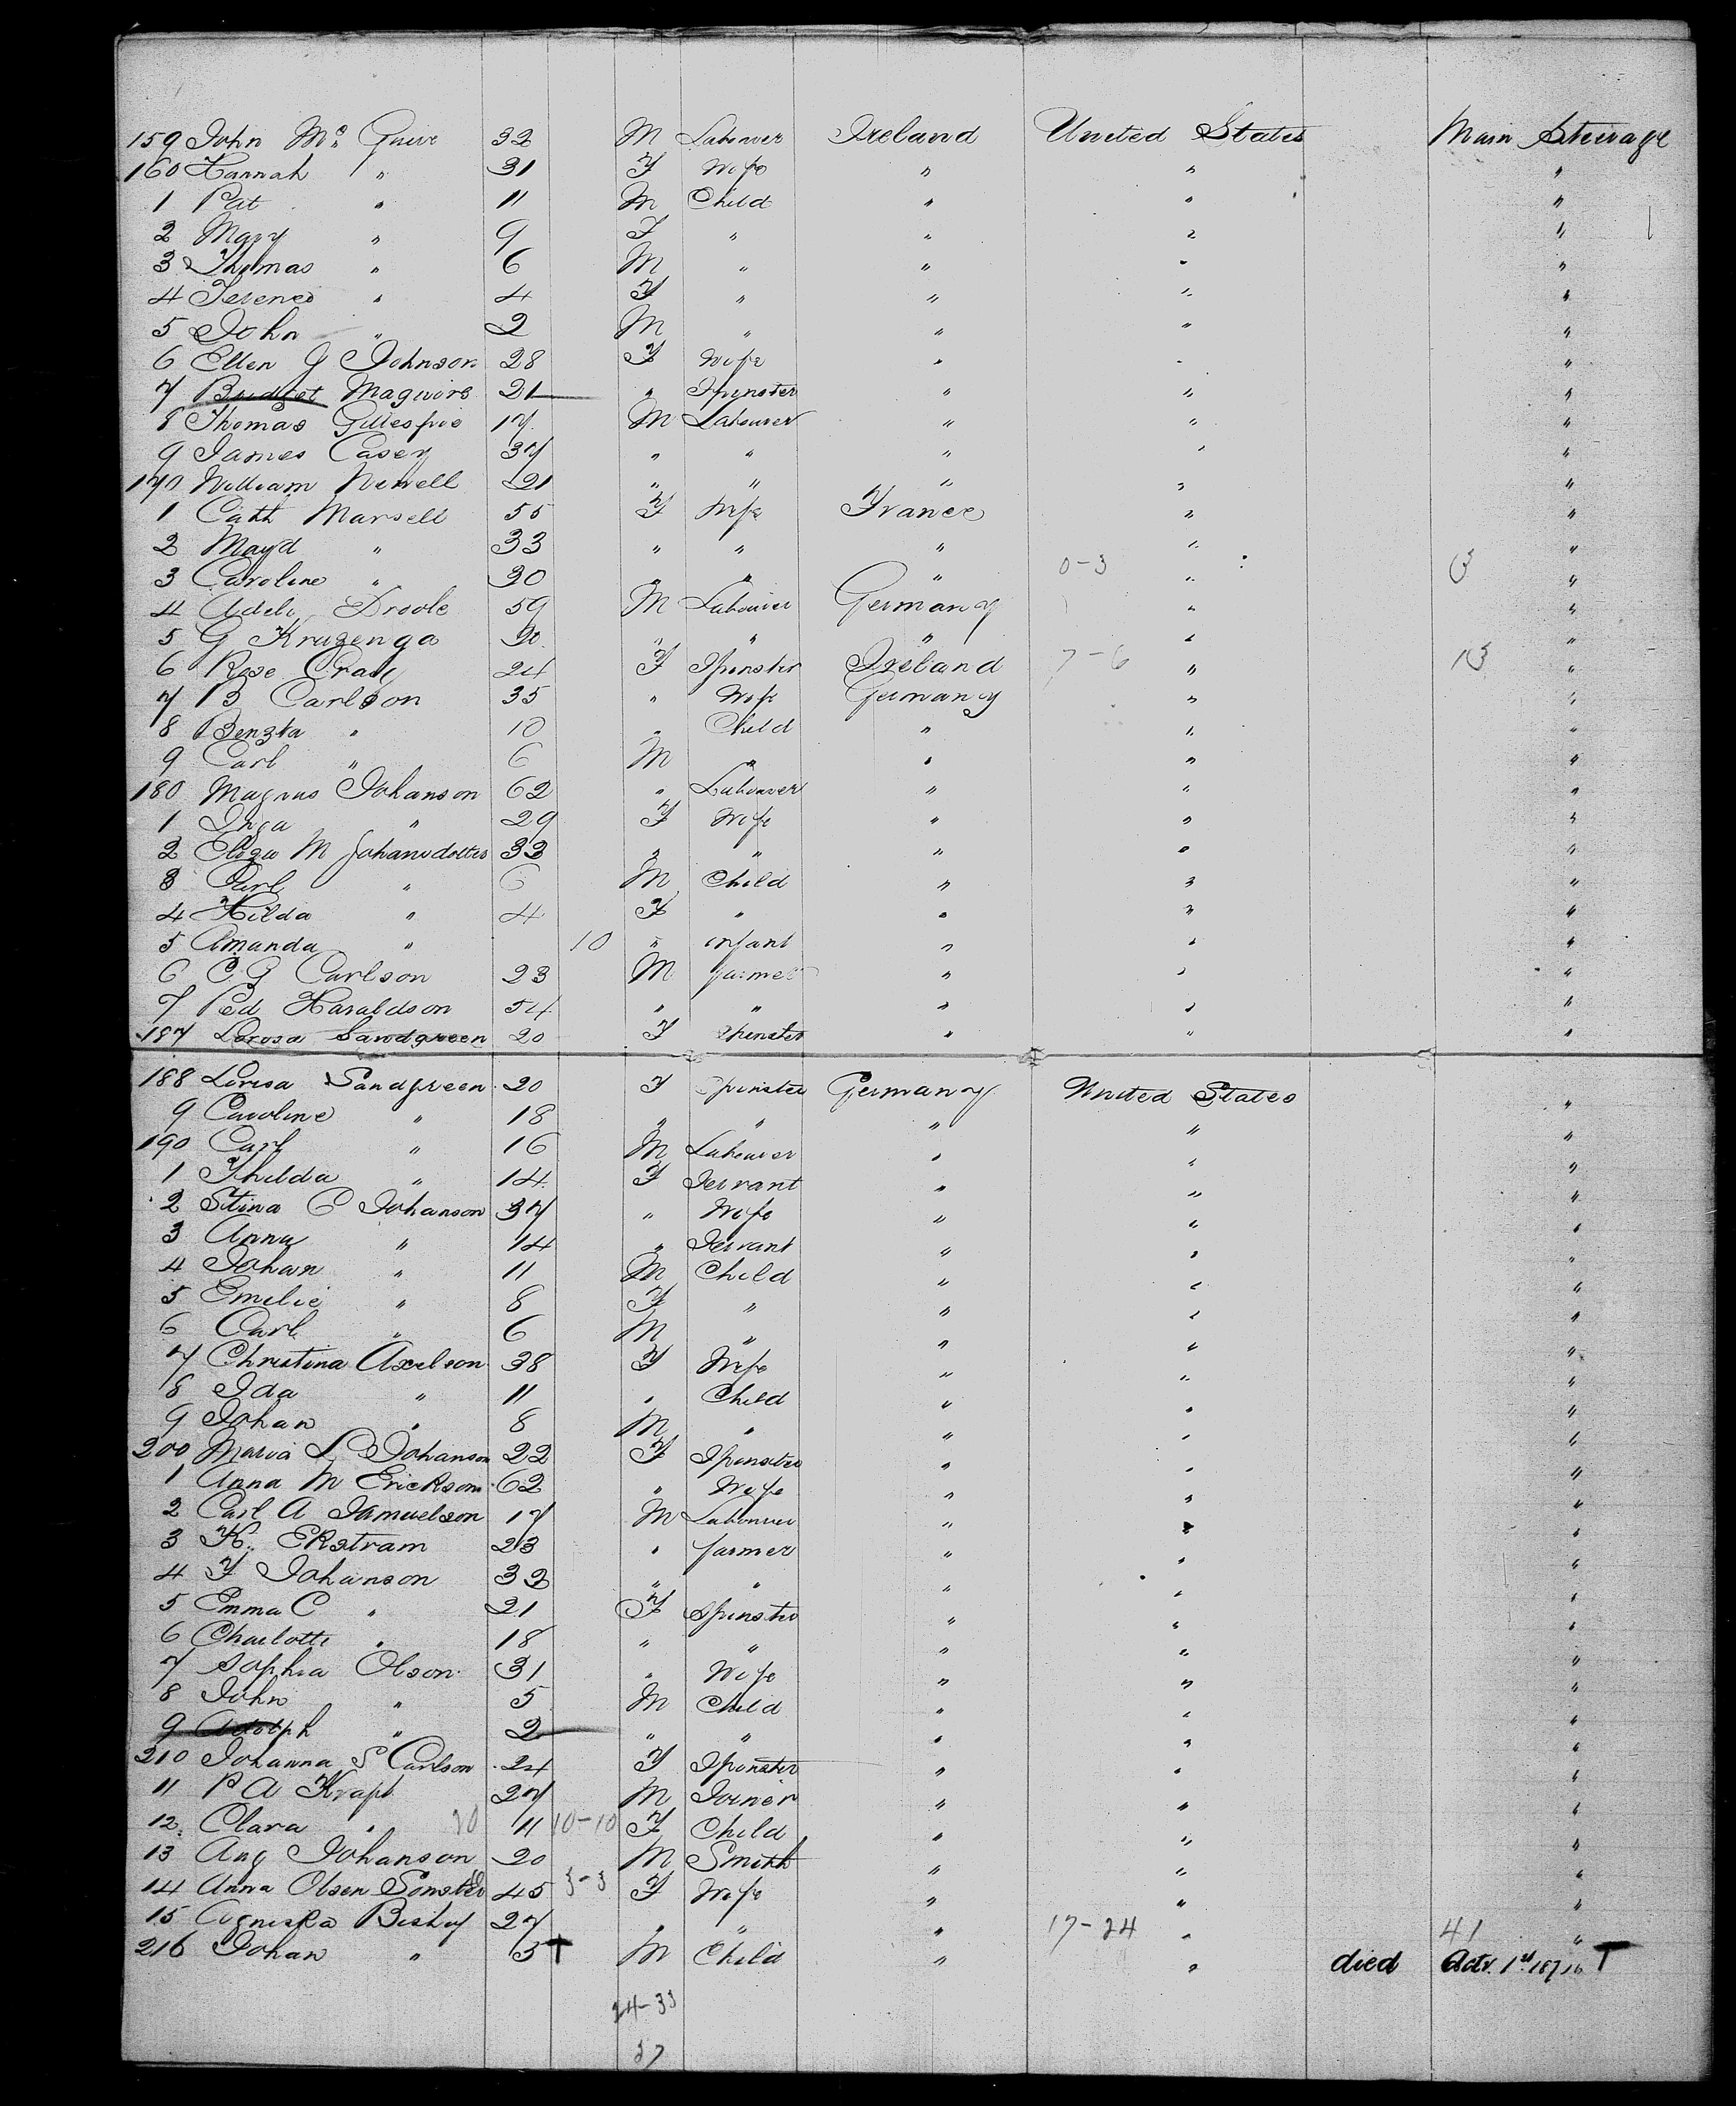 159 John Mc Guire 32 M Labourer Ireland United States Main Steerage
160 Hannah " 31 F Wife " " "
1 Pat " 11 M Child " " "
2 Mary " 9 F " " " "
3 Thomas " 6 M " " " "
4 Terence " 4 F " " " "
5 John " 2 M " " " "
6 Ellen J Johnson 28 F Wife " " "
7 Bridget Maguire 21 " Spinster " " "
8 Thomas Gillespie 17 M Labourer " " "
9 James Casey 37 " " " " "
170 William Newell 21 " " " " "
1 Cath Marsell 55 F Wife France " "
2 Mayd " 33 " " " " "
3 Caroline " 30 " " " 0-3 " 3 "
4 Adele Droole 59 M Labourer Germany " "
5 G Kruzenga 20 " " " " "
6 Rose Craig 24 F Spinster Ireland 7-6 " 13 "
7 B Carlson 35 " Wife Germany " "
8 Benzta " 10 " Child " " "
9 Carl " 6 M " " " "
180 Magnus Johanson 62 " Labourer " " "
1 Inga " 29 F Wife " " "
2 Eliza M Johansdotter 33 " " " " "
3 Carl " 6 M Child " " "
4 Hilda " 4 F " " " "
5 Amanda " 10 " infant " " "
6 C G Carlson 23 M farmer " " "
7 Ped Haraldson 54 " " " " "
187 Lorosa Sandgreen 20 F Spinster " " "
188 Lovisa Sandgreen 20 F Spinster Germany United States "
9 Caroline " 18 " " " " "
190 Carl " 16 M Labourer " " "
1 Thilda " 14 F Servant " " "
2 Stina C Johanson 37 " Wife " " "
3 Anna " 14 " Servant " " "
4 Johan " 11 M Child " " "
5 Emilie " 8 F " " " "
6 Carl " 6 M " " " "
7 Christina Axelson 38 F Wife " " "
8 Ida " 11 " Child " " "
9 Johan " 8 M " " " "
200 Maria L Johanson 22 F Spinster " " "
1 Anna M Erickson 62 " Wife " " "
2 Carl A Samuelson 17 M Labourer " " "
3 K. Ekstram 23 " farmer " " "
4 F Johanson 32 " " " " "
5 Emma C " 21 F Spinster " " "
6 Charlotte " 18 " " " " "
7 Sophia Olson 31 " Wife " " "
8 John " 5 M Child " " "
9 Adolph " 2 " " " " "
210 Johanna S Carlson 24 F Spinster " " "
11 P A Krapt 27 M Joiner " " "
12 Clara " 20 11 10-10 F Child " " "
13 Aug Johanson 20 M Smith " " "
14 Anna Olsen Sonsted 45 3-3 F Wife " " "
15 Agneska Bishof 27 " " " 17-24 " 41 "
216 Johan " 3 T M Child " " died Octr. 1st 1871 T
24-33
57